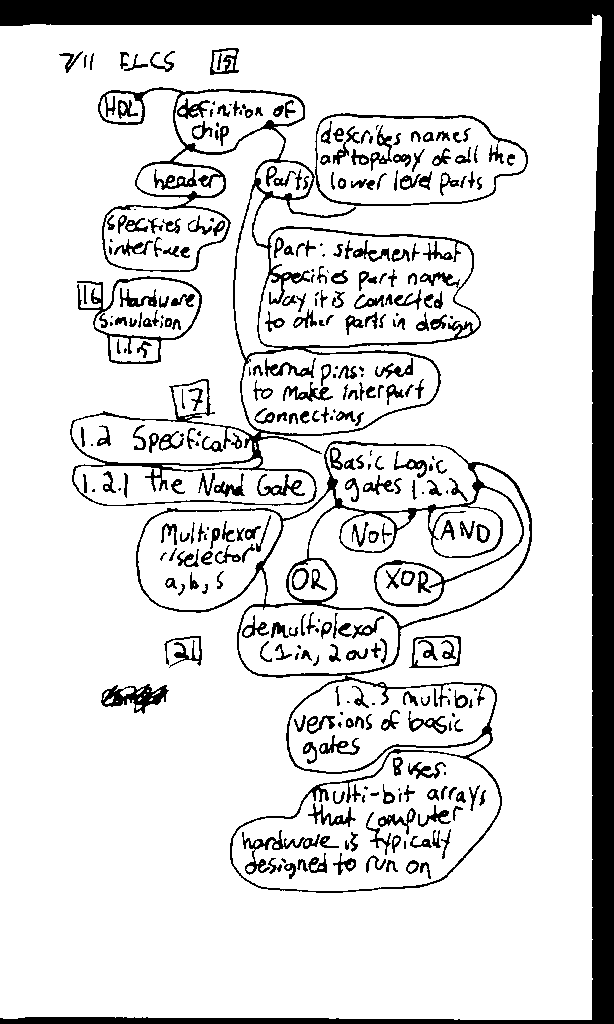 7/11 ELCS 15
HDL
definition of
chip
describes names
an topology of all the
lower level parts
header
Parts
specifies chip
interface
Part: statement that
specifies part name,
way it is connected
to other parts in design
16
Hardware
simulation
1.1.5
internal pins: used
to make interpart
connections
17
1.2 Specification
1.2.1 the Nand Gate
Basic Logic
gates 1.2.2
Multiplexor/
"selector"
a, b, s
Not
AND
OR
XOR
demultiplexor
(1 in, 2 out)
21
22
1.2.3 multibit
versions of basic
gates
Buses:
multi-bit arrays
that computer
hardware is typically
designed to run on